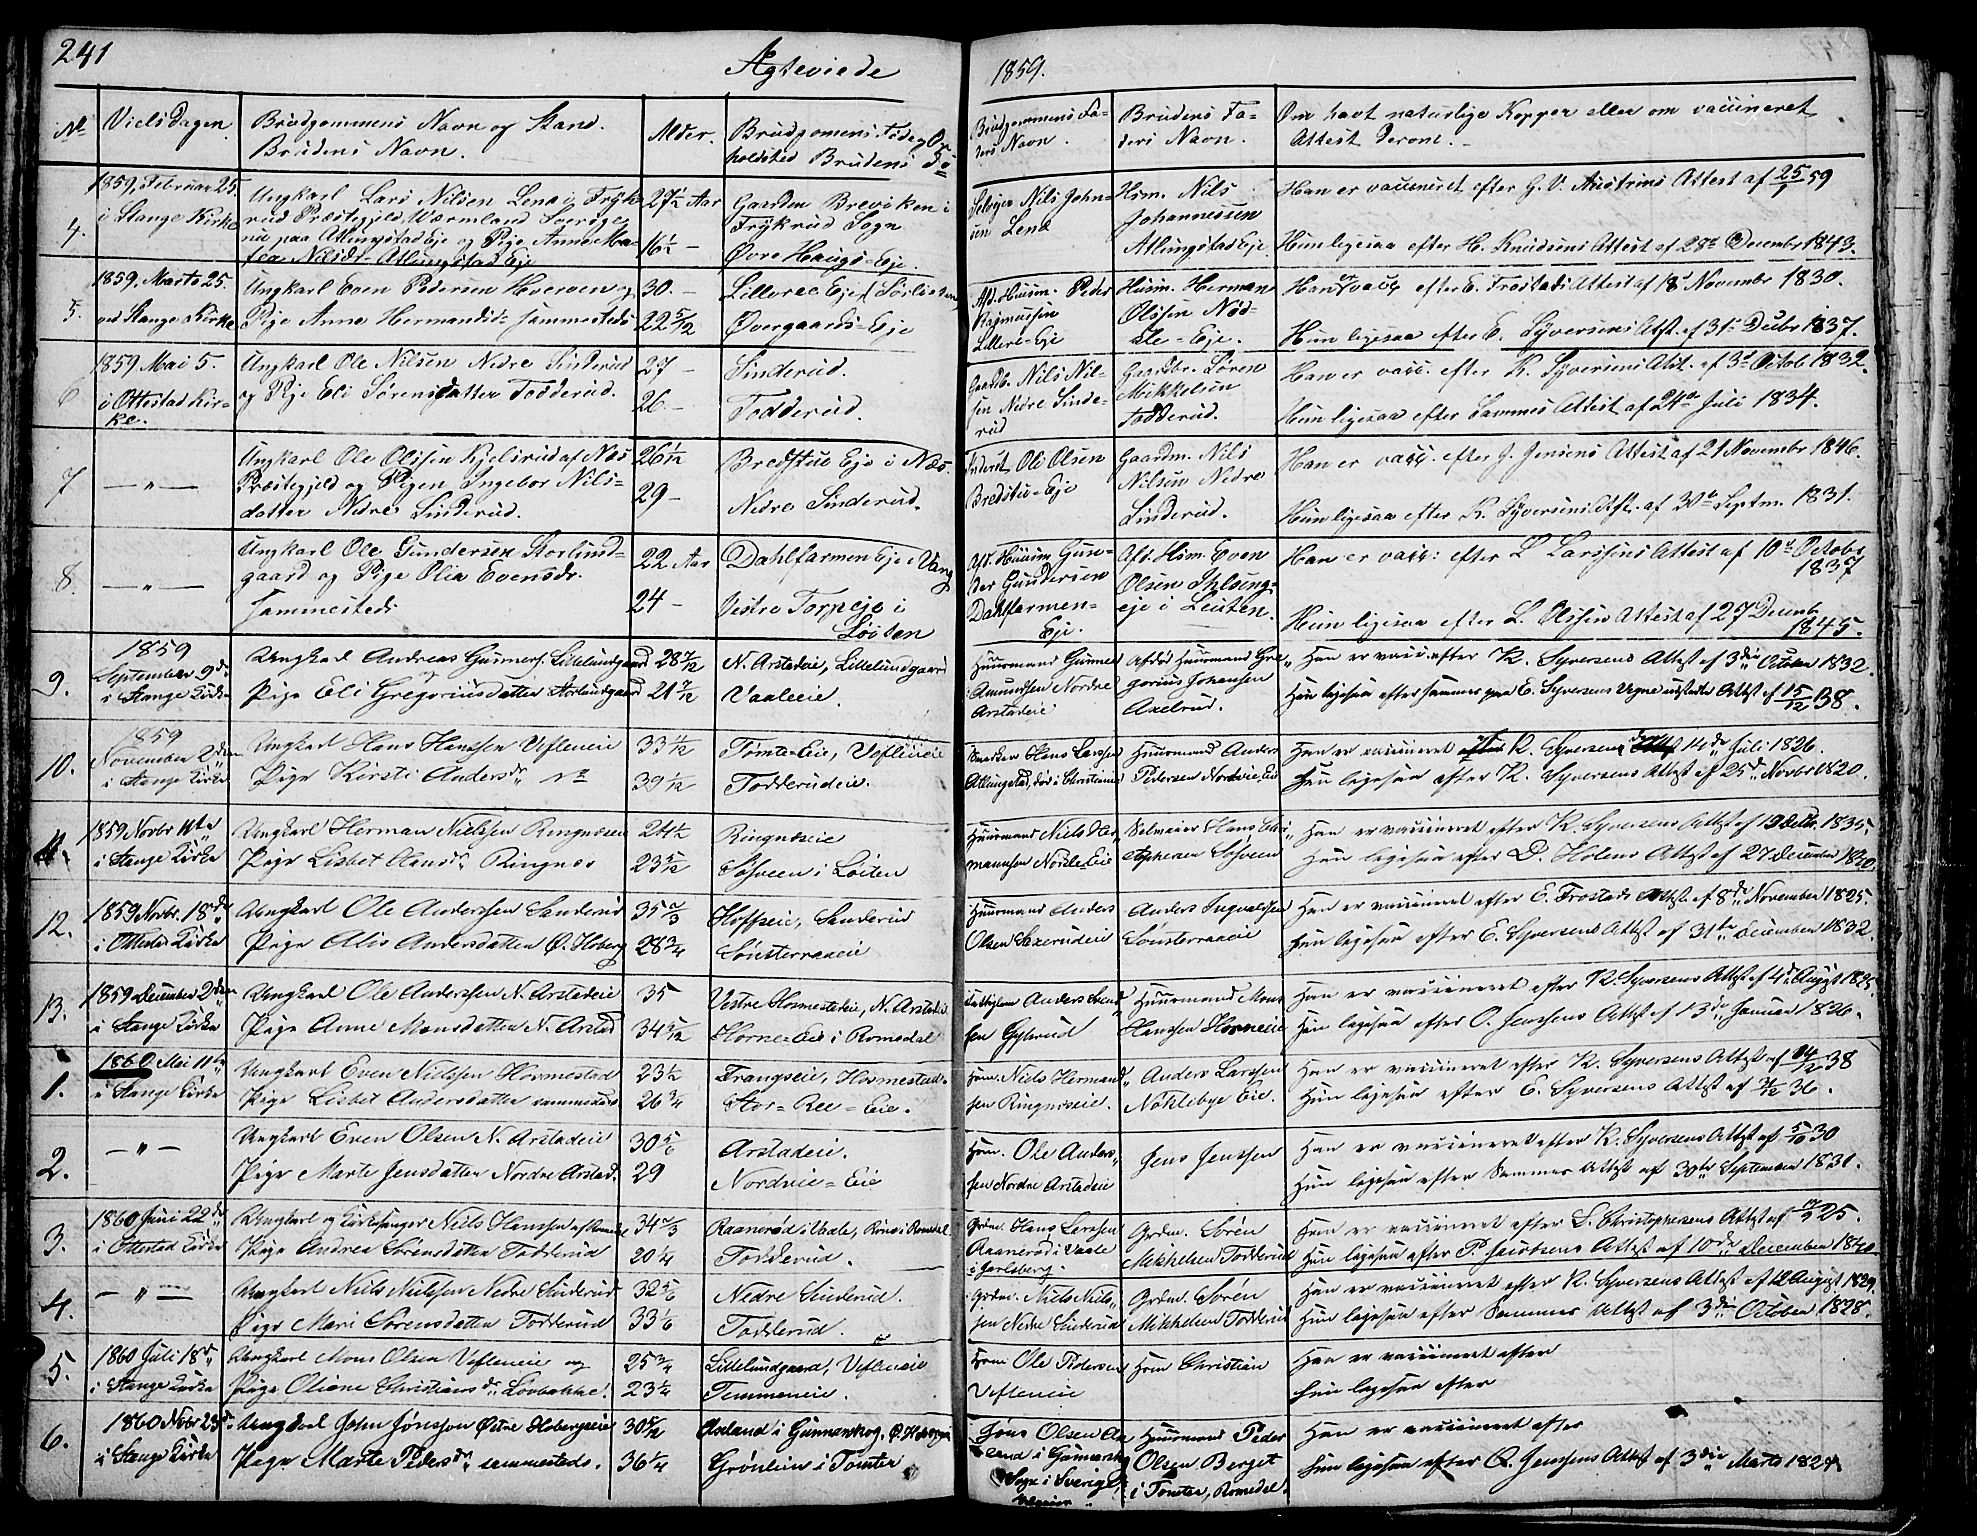 241
Ægteviede
1859.
No
Viels Dagen
Brudgommens Navn og Stand.
Brudens Navn.
Alder.
Brudgomens Føde og Op-
holdsted Brudens do
Brudgommens Fa-
ders Navn.
Brudens Fa-
ders Navn.
Om havt naturlige Kopper eller om vaccineret
Attest derom.
4.
1859, Februar 25.
i Stange Kirke
Ungkarl Lars Nilsen Lena i Fryk-
rud Præstegjeld, Wærmland Sverige,
nu paa Atlungstad Eje og Pige Anne Ma-
rea Nilsdr Atlungstad Eje
27½ Aar
16½ —
Gaarden Breviken i
Frykrud Sogn
Øvre Haugs-Eje.
Selvejer Nils John-
sen Lena
Hsm. Nils
Johannessen
Atlungstad Eje
Han er vaccineret efter G. V. Austrins Attest af 25/1 59
Hun ligesaa efter H. Knudsens Attest af 28de December 1843.
5.
1859. Marts 25.
ved Stange Kirke
Ungkarl Even Pedersen Hverven og
Pige Anne Hermandsdr sammesteds
30. —
22 5/12
Lilleree Eje i Sørlisten
Øvergaards-Eje
Afd. Husm. Peder
Rasmussen
Lillere-Eje
Husm. Herman
Olssen Nød-
sle-Eje.
Han er vacc efter E. Frostads Attest af 18d Novembr 1830.
Hun ligesaa efter E. Syversens Attst. af 31te Decbr 1837.
6
1859 Mai 5.
i Ottestad Kir-
ke.
Ungkarl Ole Nilsen Nedre Sinderud
og Pige Eli Sørensdatter Todderud.
27 —
26. —
Sinderud.
Todderud.
Gaardb. Nils Nil-
sen Nedre Sinde-
rud
Gaardbr. Søren
Mikkelsen
Todderud.
Han er vacc. efter K. Syversens Attst. af 3d Octob 1832.
Hun ligesaa efter Sammes Attest af 24de Juli 1834.
7
— " —
Ungkarl Ole Olssen Kjelsrud af Næs
Præstegjeld og Pigen Ingebor Nils-
datter Nedre Sinderud.
26½
29 —
Bredstue Eje i Næs.
Nedre Sinderud.
Inderst Ole Olsen
Bredstu-Eje
Gaardm. Nils
Nilsen Nedre
Sinderud.
Han er vacc. efter J. Jensens Attest af 21 Novembr 1846.
Hun ligesaa efter K. Syversens Atst. af 30te Septm. 1831.
8.
— " —
Ungkarl Ole Gundersen Storlund-
gaard og Pige Olia Evensdr.
Sammesteds
22 Aar
24 —
Dahlfarmen Eje i Vang
Vestre Torpeje i
Løiten
Afd. Huusm Gun-
der Gundersen
Dahlfarmen-
Eje.
Afd. Hsm. Even
Olsen
eje i Leuten.
Han er vacc: efter L Larssens Attest af 10d Octobr
1837
Hun ligesaa efter L. Olssens Attest af 27 Decemb
1845.
9.
1859
September 9de
i Stange Kirke
Ungkarl Andreas Gunners. Lillelundgaard
Pige Eli Gregoriusdatter Storlundgaard
28 7/12
21 7/12
N. Arstadeie, Lillelundgaard
Vaaleeie.
Huusmand Gunner
Amundsen Nordre
Arstadeie
Afdød Huusmand Gre-
gorius Johansen
Axelrud.
Han er vacc. efter K. Syversens Attest af 3die October 1832.
Hun ligesaa efter sammes paa E. Syversens Vegne udstedte Attest af 15/12 38.
10.
1859
November 2den
i Stange Kirke
Ungkarl Hans Hanssen Vefleneie
Pige Kirsti Andersdr
33 1/12
39 1/12
Tomte-Eie, Vefleneie
Todderudeie.
Snedker Hans Larssen
Atlungstad, død i Christiania
Huusmand Anders
Pedersen Nordvie-Eie
Han er vaccineret efter K. Syversens Attst 14de Juli 1826.
Hun ligesaa efter K. Syversens Attest af 25d Novbr 1820.
11.
1859 Novbr 11te
i Stange Kirke
Ungkarl Herman Nielssen Ringnæseie
Pige Lisbet Hansdr Ringnes
24½
23 5/12
Ringnæseie
Sosveen i Løiten
Huusmand Niels Her-
mannsen Nordre-Eie
Selveier Hans Chri-
stophersen Sosveen
Han er vaccineret efter K. Syversens Attest af 19 Octbr. 1835.
Hun ligesaa efter D. Holens Attest af 27 December 1840.
12.
1859 Novbr. 18de
i Ottestad Kirke
Ungkarl Ole Anderssen Sanderud
Pige Alis Andersdatter Ø. Hoberg
35 2/3
28 3/4
Hoffseie, Sanderud
Sønsterraaeie
Huusmand Anders
Olsen Saxerudeie
Anders Ingvaldsen
Sønsterraaeie
Han er vaccineret efter E. Frostads Attest af 8de November 1825.
Hun ligesaa efter E. Syversens Attest af 31te December 1832.
13.
1859 December 2den
i Stange Kirke
Ungkarl Ole Anderssen N. Arstadeie
Pige Anne Monsdatter N. Arstad
35
34 5/12
Vestre Hormestadeie, N. Arstadeie
Horne-Eie i Romedal
Anders Svend-
sen Gylerud
Huusmand Mons
Hanssen Horneeie
Han er vaccineret efter K. Syversens Attest af 4d August 1825.
Hun ligesaa efter O. Jenssens Attest af 13de Januar 1826.
1.
1860 Mai 11te
i Stange Kirke
Ungkarl Even Nielssen Hormestad
Pige Lisbet Andersdatter sammesteds
23½
26 3/4
Frangseie, Hosmestad.
Stor-Ree-Eie.
Hsm. Niels Hermand-
sen Ringneseie.
Anders Larssen
Nøklebye Eie.
Han er vaccineret efter K. Syversens Attest af 14/12 38
Hun ligesaa efter E. Syversens Attest af 4/12 36.
2.
— " —
Ungkarl Even Olsen N. Arstadeie
Pige Marte Jensdatter Nordre Arstad.
30 5/6
29
Arstadeie.
Nordvie-Eie
Hsm. Ole Anders-
sen Nordre Arstadeie
Jens Jenssen
Han er vaccineret efter K. Syversens Attest af 5/10 30
Hun ligesaa efter Sammes Attest af 30te September 1831.
3.
1860 Juni 22de
i Ottestad Kirke
Ungkarl og Kirkesanger Niels Hanssen af Romedal
Pige Andrea Sørensdatter Todderud
34 2/3
20 1/4
Raanerød i Vaale, Romedal
Todderud.
Grdm. Hans Larssen
Raanerød i Vaale
i Jarlsberg.
Grdm. Sørén
Mikkelsen Todderud
Han er vaccineret efter S. Christophersens Attest af 17/9 25.
Hun ligesaa efter P. Jacobsens Attest af 10de December 1840.
4.
— " —
Ungkarl Niels Nielssen Nedre Sinderud
Pige Mari Sørensdatter Todderud
32 5/6
33 1/6
Nedre Sinderud.
Todderud.
Grdm. Niels Niels-
sen Nedre Sinderud
Grdm. Sørén
Mikkelsen Todderud
Han er vaccineret efter K. Syversens Attest af 12 August 1829.
Hun ligesaa efter Sammes Attest af 3die October 1828.
5.
1860 Juli 18de
i Stange Kirke
Ungkarl Mons Olsen Vefleneie og
Pige Oliane Christiansdr Lovbakke.
25 3/4
23 1/4
Lillelundgaard, Vefleneie
Temmeneie.
Hsm Ole Pedersen
Vefleneie
Hsm Christian
Han er vaccineret efter
Hun ligesaa efter
6.
1860 Novbr 23de
i Stange Kirke
Ungkarl John Jönsson Østre Hobergseie
Pige Marte Pedersdr sammesteds.
30 5/12
36 1/4
Axland i Gunnarskog, Ø. Hobergseie
Grönlien i Tomter
Jöns Olsen Ax-
land i Gunnarskog
Sogn i Sverige,
Huusmand Peder
Olsen Berget
i Tomter, Romedal
Han er vaccineret efter
Hun ligesaa efter O. Jenssens Attest af 3die Marts 1824.